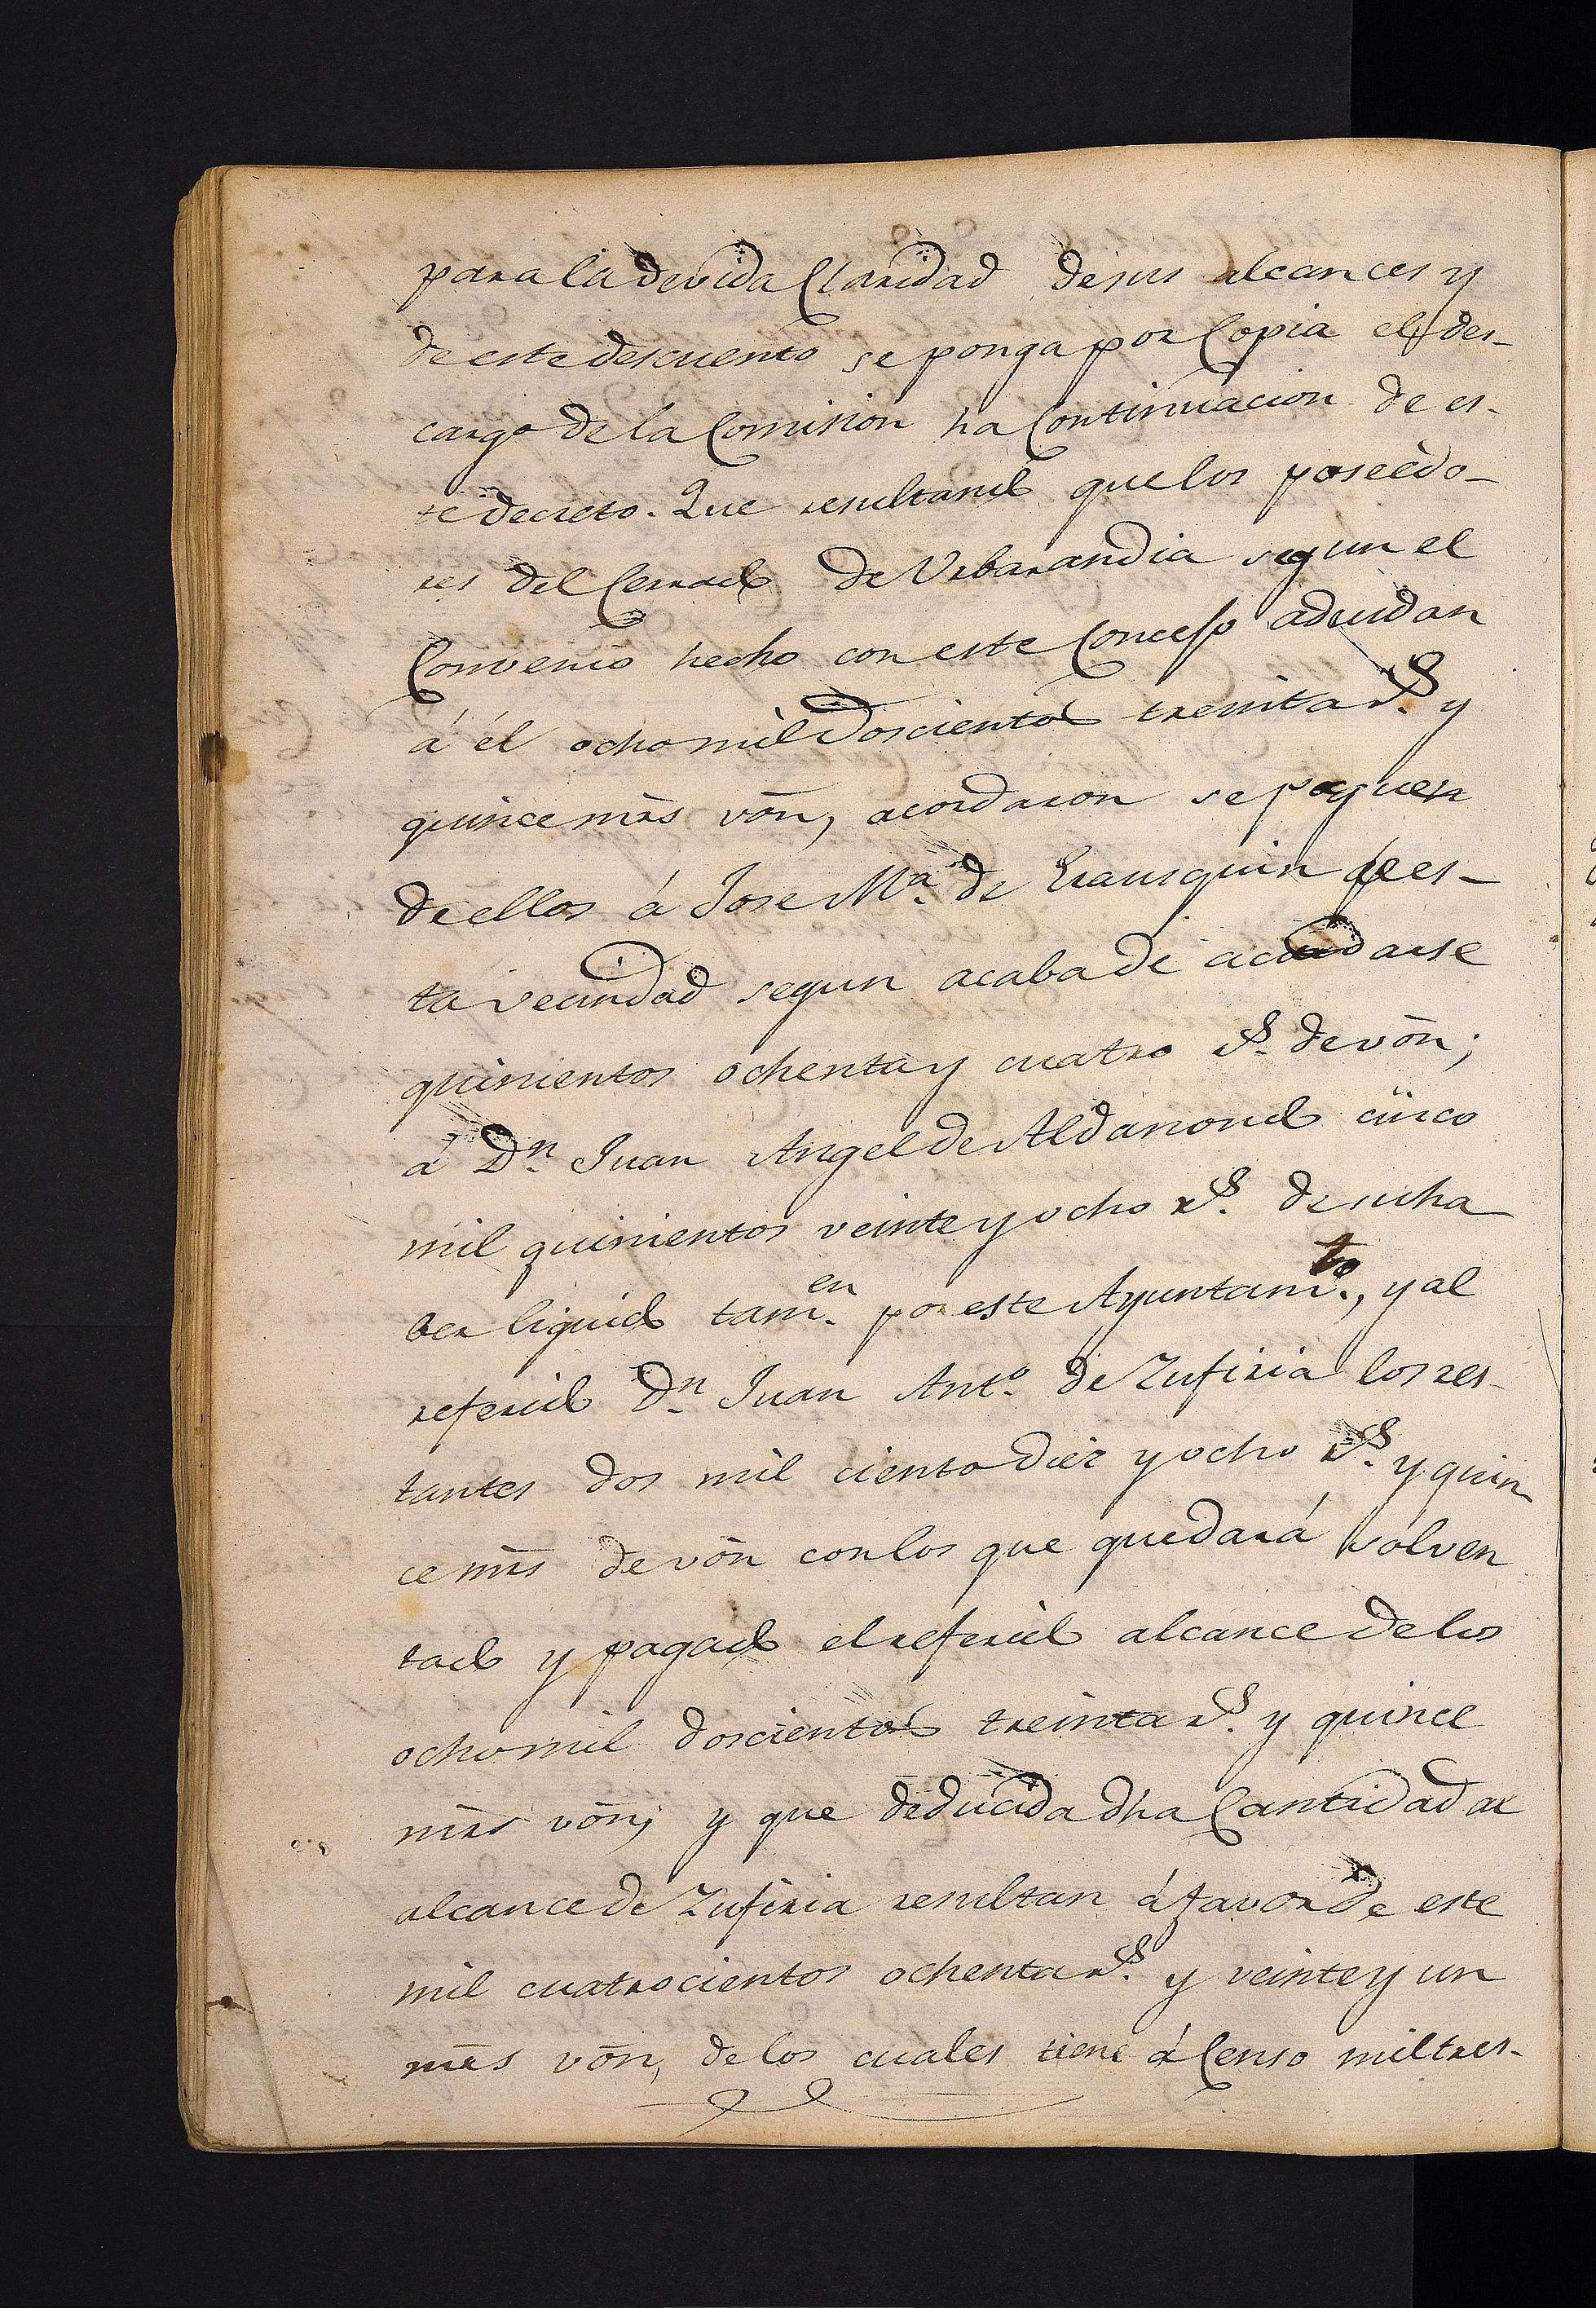 para la devida Claridad de sus alcances y
de este descuento se ponga por Copia el des-
cargo de la Comision ha Continuacion de es-
te decreto. Que resultando que los poseèdo-
res del Cerrado de Urbarandia segun el
Convenio hecho con este Concejo adeudan
á él ocho mil Doscientos treinta rs. y
quince mrs von, acordaron se paguen
de ellos á Jose Ma. de de es-
ta vecindad segun acaba de acordarse
quinientos ochenta y cuatro rs. de von;
á Dn. Juan Angel de Aldanondo cinco
mil quinientos veinte y ocho rs. de su ha
ber liquido tamen. por este Ayuntamto., y al
referido Dn. Juan Anto. de Zufiria los res-
tantes dos mil ciento diez y ocho rs. y quin
ce mrs de von con los que quedará solven
tado y pagado el referido alcance de los
ocho mil doscientos treinta rs. y quince
mrs von; y que deducida dha Cantidad al
alcance de Zufiria resultan á favor de este
mil cuatrocientos ochenta rs. y veinte y un
mrs von, de los cuales tiene á Censo mil tres-